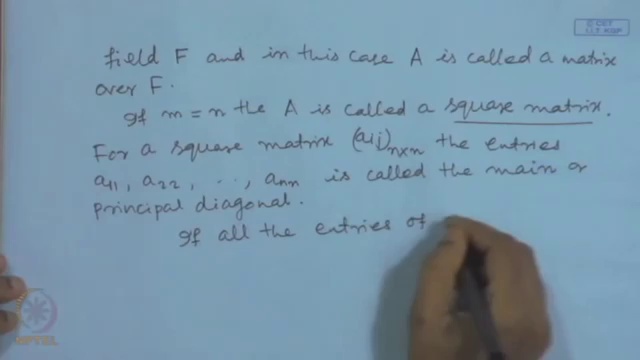 field F and in this case A is called a matrix
over F.
If m = n the A is called a square matrix.
For a square matrix (aij)n×n the entries
a11, a22, ..., ann is called the main or
principal diagonal.
If all the entries of
© CET
I.I.T. KGP
NPTEL